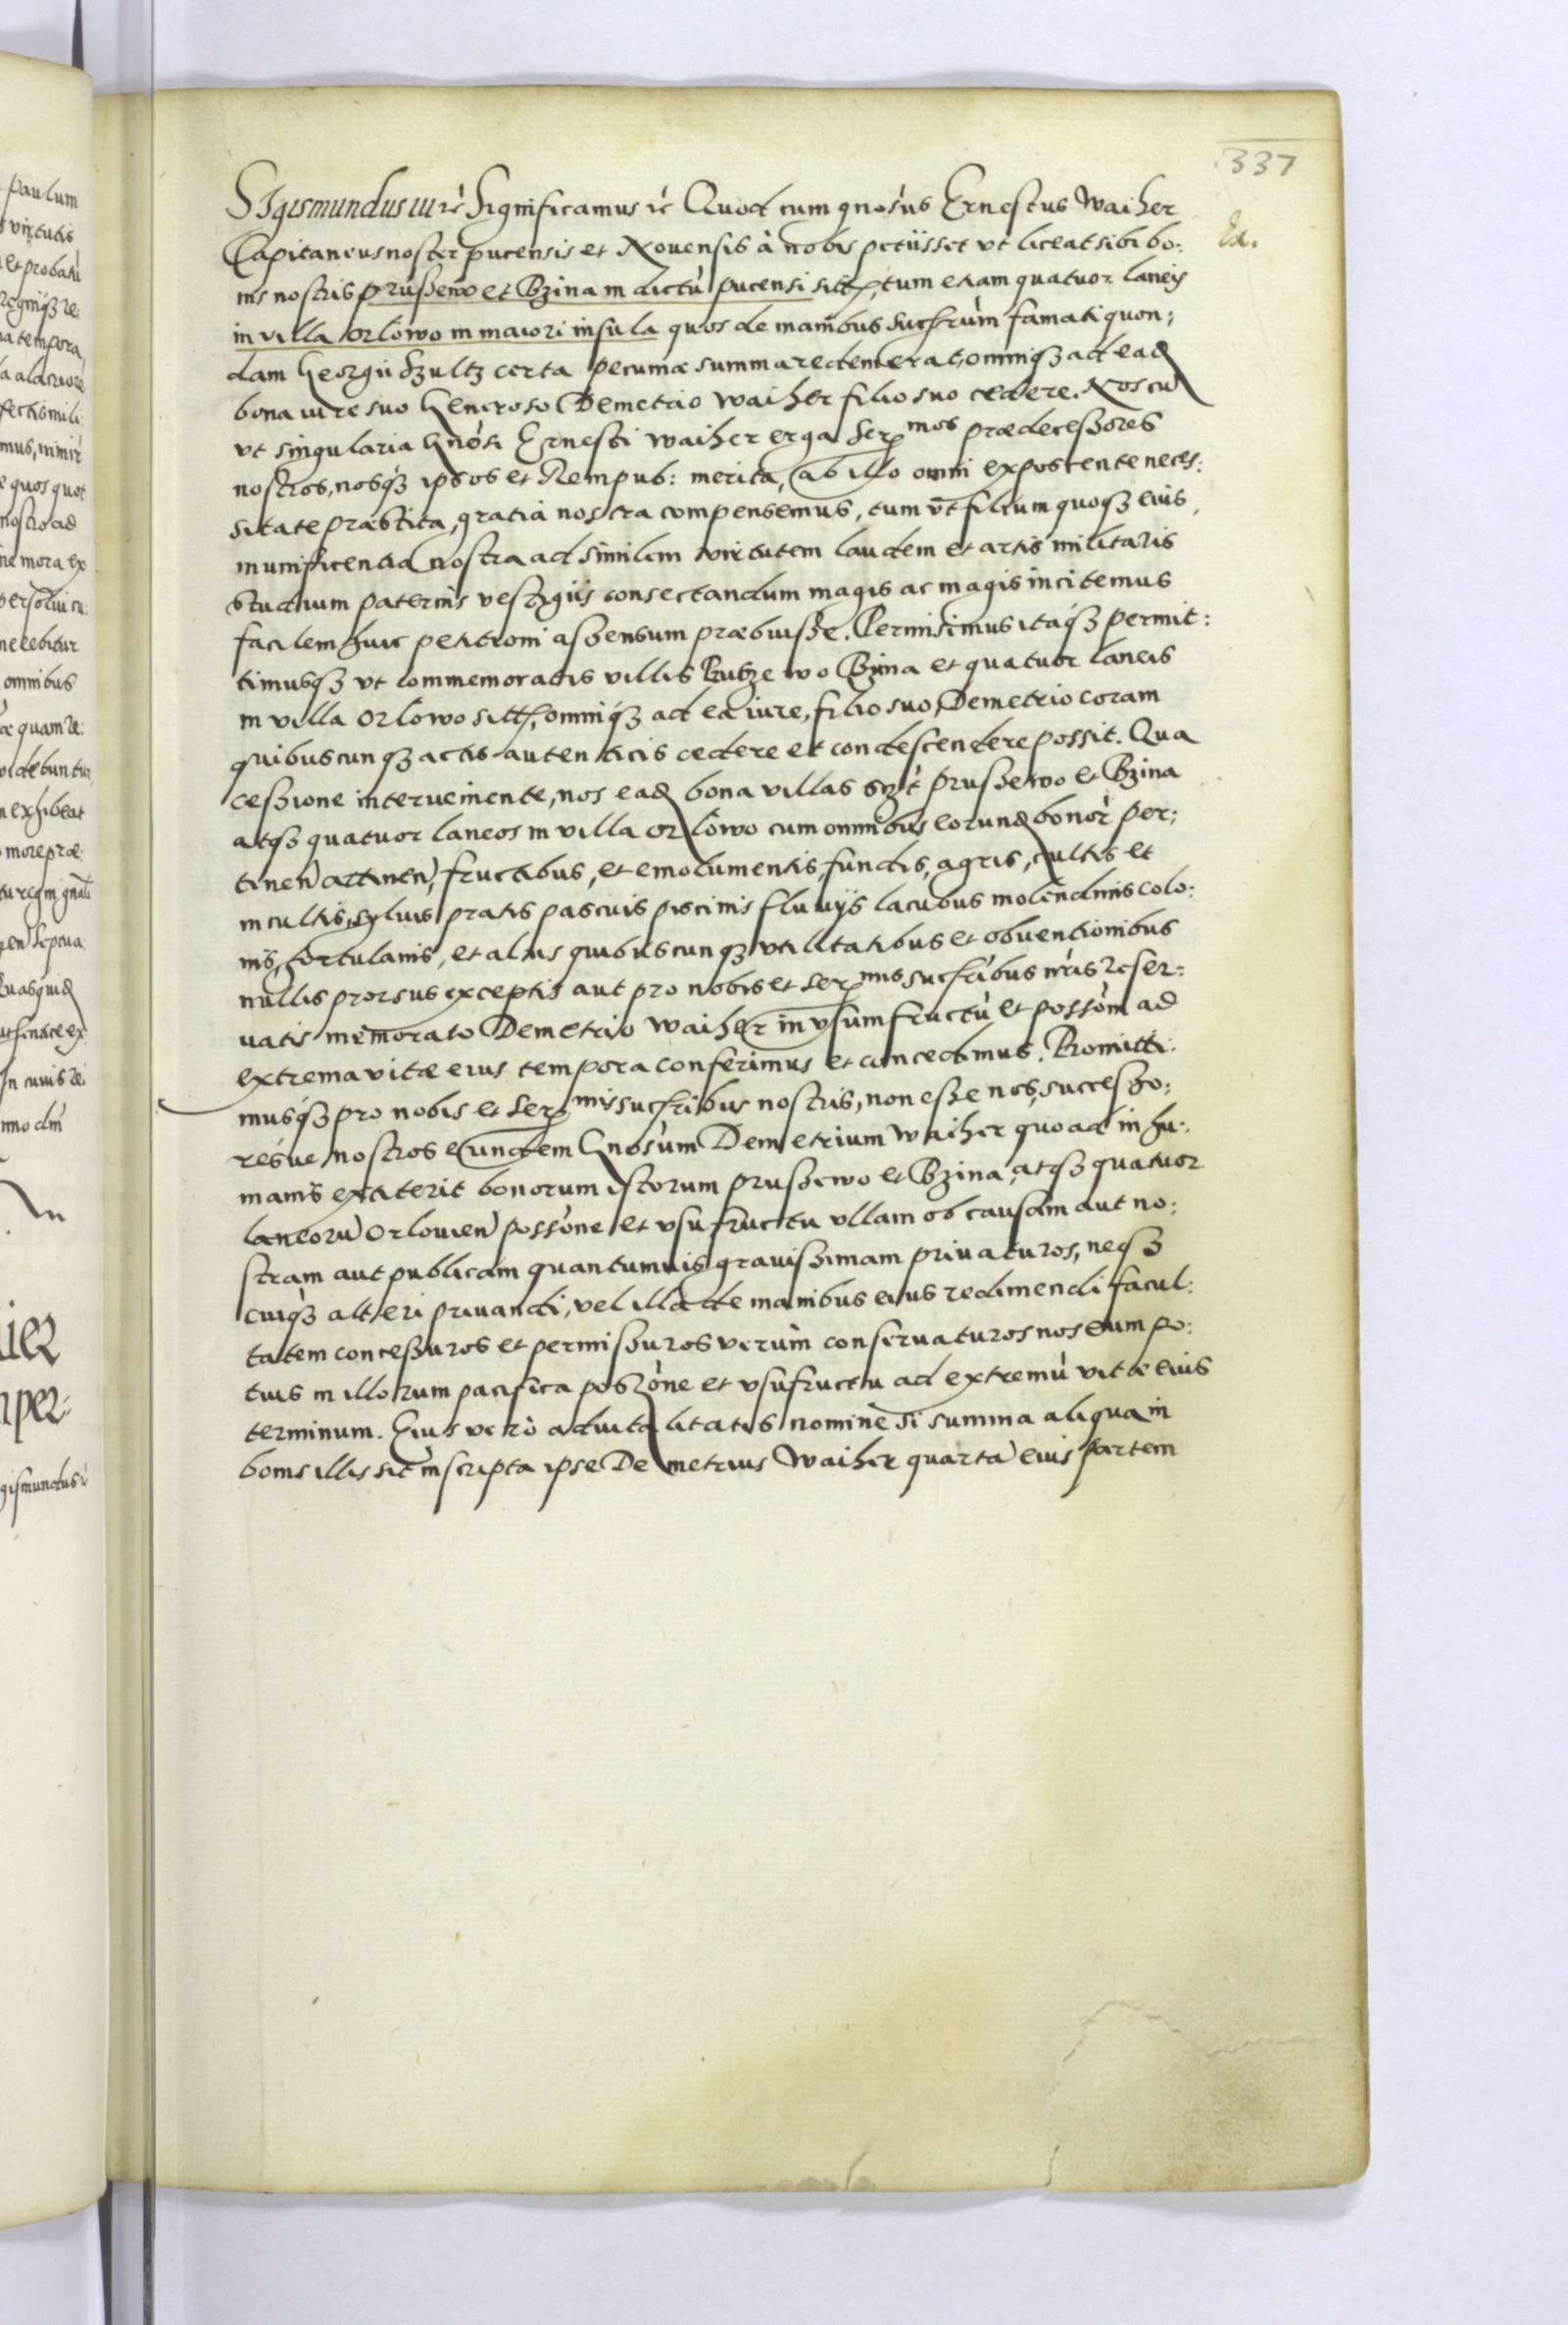 337
Ex.
Sigismundus III rc̃ Significamus rc̃ Quod cum gnosùs Ernestus Waiher
Capitaneus noster pucensis et Novensis à nobis petiisset vt liceat sibi bo:
nis nostris prussewo et Bzina in dictù pucensi sitt, tum etiam quatuor laneis
in villa orlowo in maiori insula quos de manibus sucsrùm famati quon:
dam Georgii Szultz certa pecuniæ summa redemerat, omniq3 ad ead
bona iure suo Generoso Demetrio Waiher filio suo cedere. Nos cu
vt singularia Gnósi Ernesti Waiher erga Ser mos prædecessores
nostros, nosq3 ipsos et Rempub: merita, ab illo omni exposcente neces:
sitate præstita, gratia nostra compensemus, tum vt filium quoq3 eius,
munificentia nostra ad similem virtutem laudem et artis militaris
studium paternis vestigiis consectandum magis ac magis incitemus
facilem huic petitioni assensum præbuisse. Permisimus itaq3 permit:
timusq3 vt commemoratis villis Rutzewo Bzina et quatuor laneis
in villa orlowo sitt, omniq3 ad ea iure, filio suo Demetrio coram
quibuscunq3 actis autenticis cedere et condescendere possit. Qua
cessione interueniente, nos ead bona villas szt prussewo et Bzina
atq3 quatuor laneos in villa orlowo cum omnibus eorund bonor per:
tinen attinen, fructibus, et emolumentis, fundis, agris, cultis et
incultis, syluis pratis pascuis piscinis fluuijs lacubus molendinis colo:
nis, hortulanis, et aliis quibuscunq3 vtilitatibus et obuentionibus
nullis prorsus exceptis aut pro nobis et Ser mis sucsribus nris reser:
uatis memorato Demetrio Waiher in vsumfructù et possom ad
extrema vitæ eius tempora conferimus et concedimus. Promitti:
musq3 pro nobis et Ser mis sucsribus nostris, non esse nos, successo:
résue nostros eundem Gnosùm Demetrium Waiher quoad in hu:
manis extiterit bonorum istorum prussewo et Bzina, atq3 quatuor
laneorù orlouien possone et vsufructu vllam ob causam aut no:
stram aut publicam quantumuis grauissimam priuaturos, neq3
cuiq3 alteri priuandi, vel illa de manibus eius redimendi facul:
tatem concessuros et permissuros verùm conseruaturos nos eum po:
tius in illorum pacifica possone et vsufructu ad extremù vitæ eius
terminum. Eius verò aduitalitatis nomine si summa aliqua in
bonis illis sit inscripta ipse Demetrius Waiher quartà eius partem